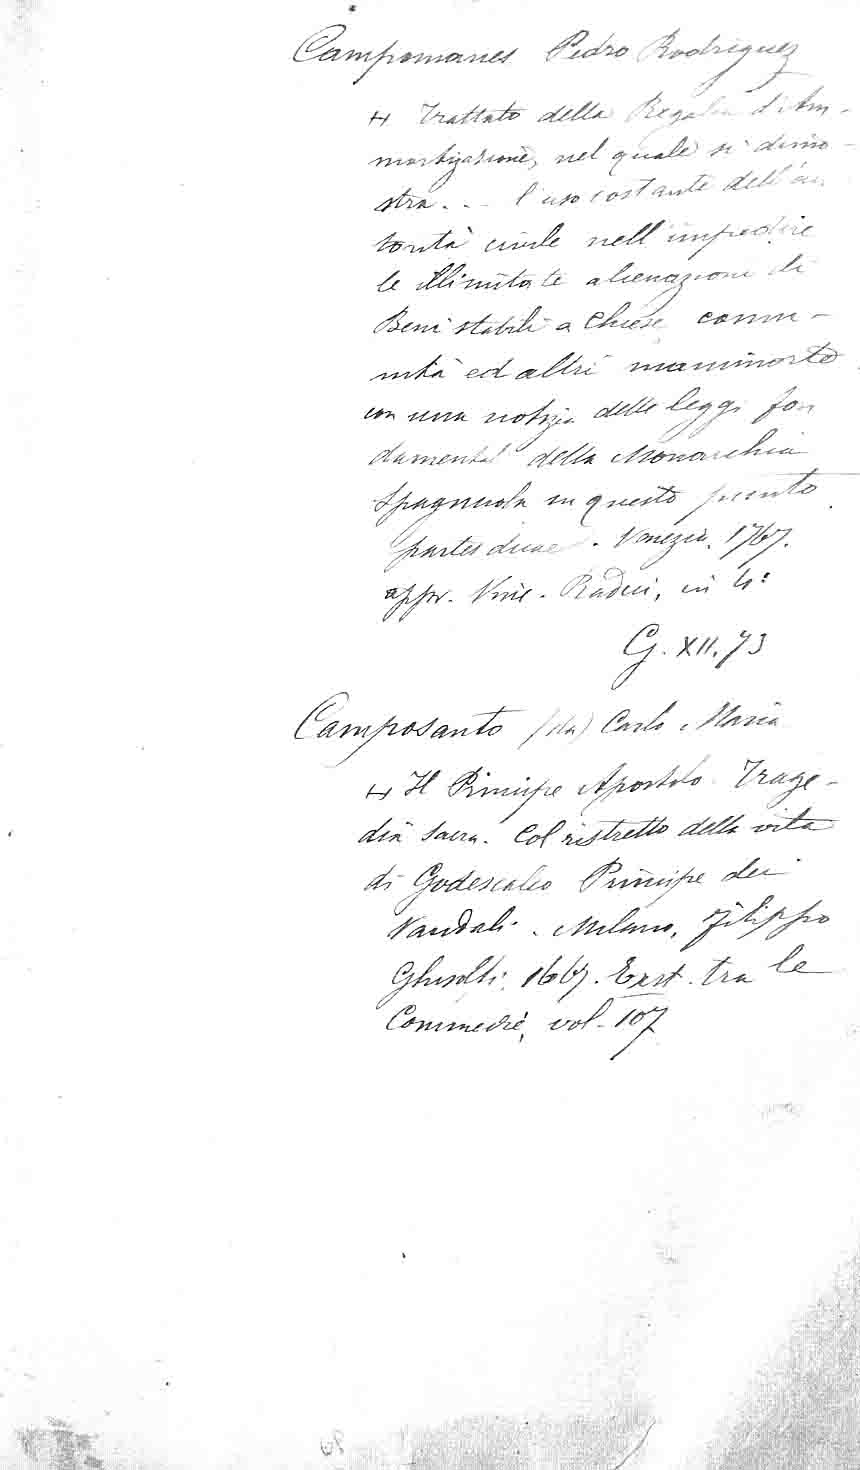 Campomanes Pedro Rodriguez
Trattato della Regalia d'Am-
mortizazione, nel quale si dimo-
stra... l'uso costante dell'au-
torità civile nell'impedire
le illimitate alienazioni di
Beni stabili a Chiese, comu-
nità ed altri manimorte
con una notizia delle leggi fon
damentali della Monarchia
Spagnuola su questo punto
partes duae. Venezia. 1767.
appr. Vinc. Radici, in 4:
G. XII. 73
Camposanto (da) Carlo Maria
Il Principe Apostolo. Trage-
dia Sacra. Col ristretto della vita
di Godescalco Principe dei
Vandali. Milano, Filippo
Ghisolfi, 1667. Exst. tra le
Commedie, vol. 107